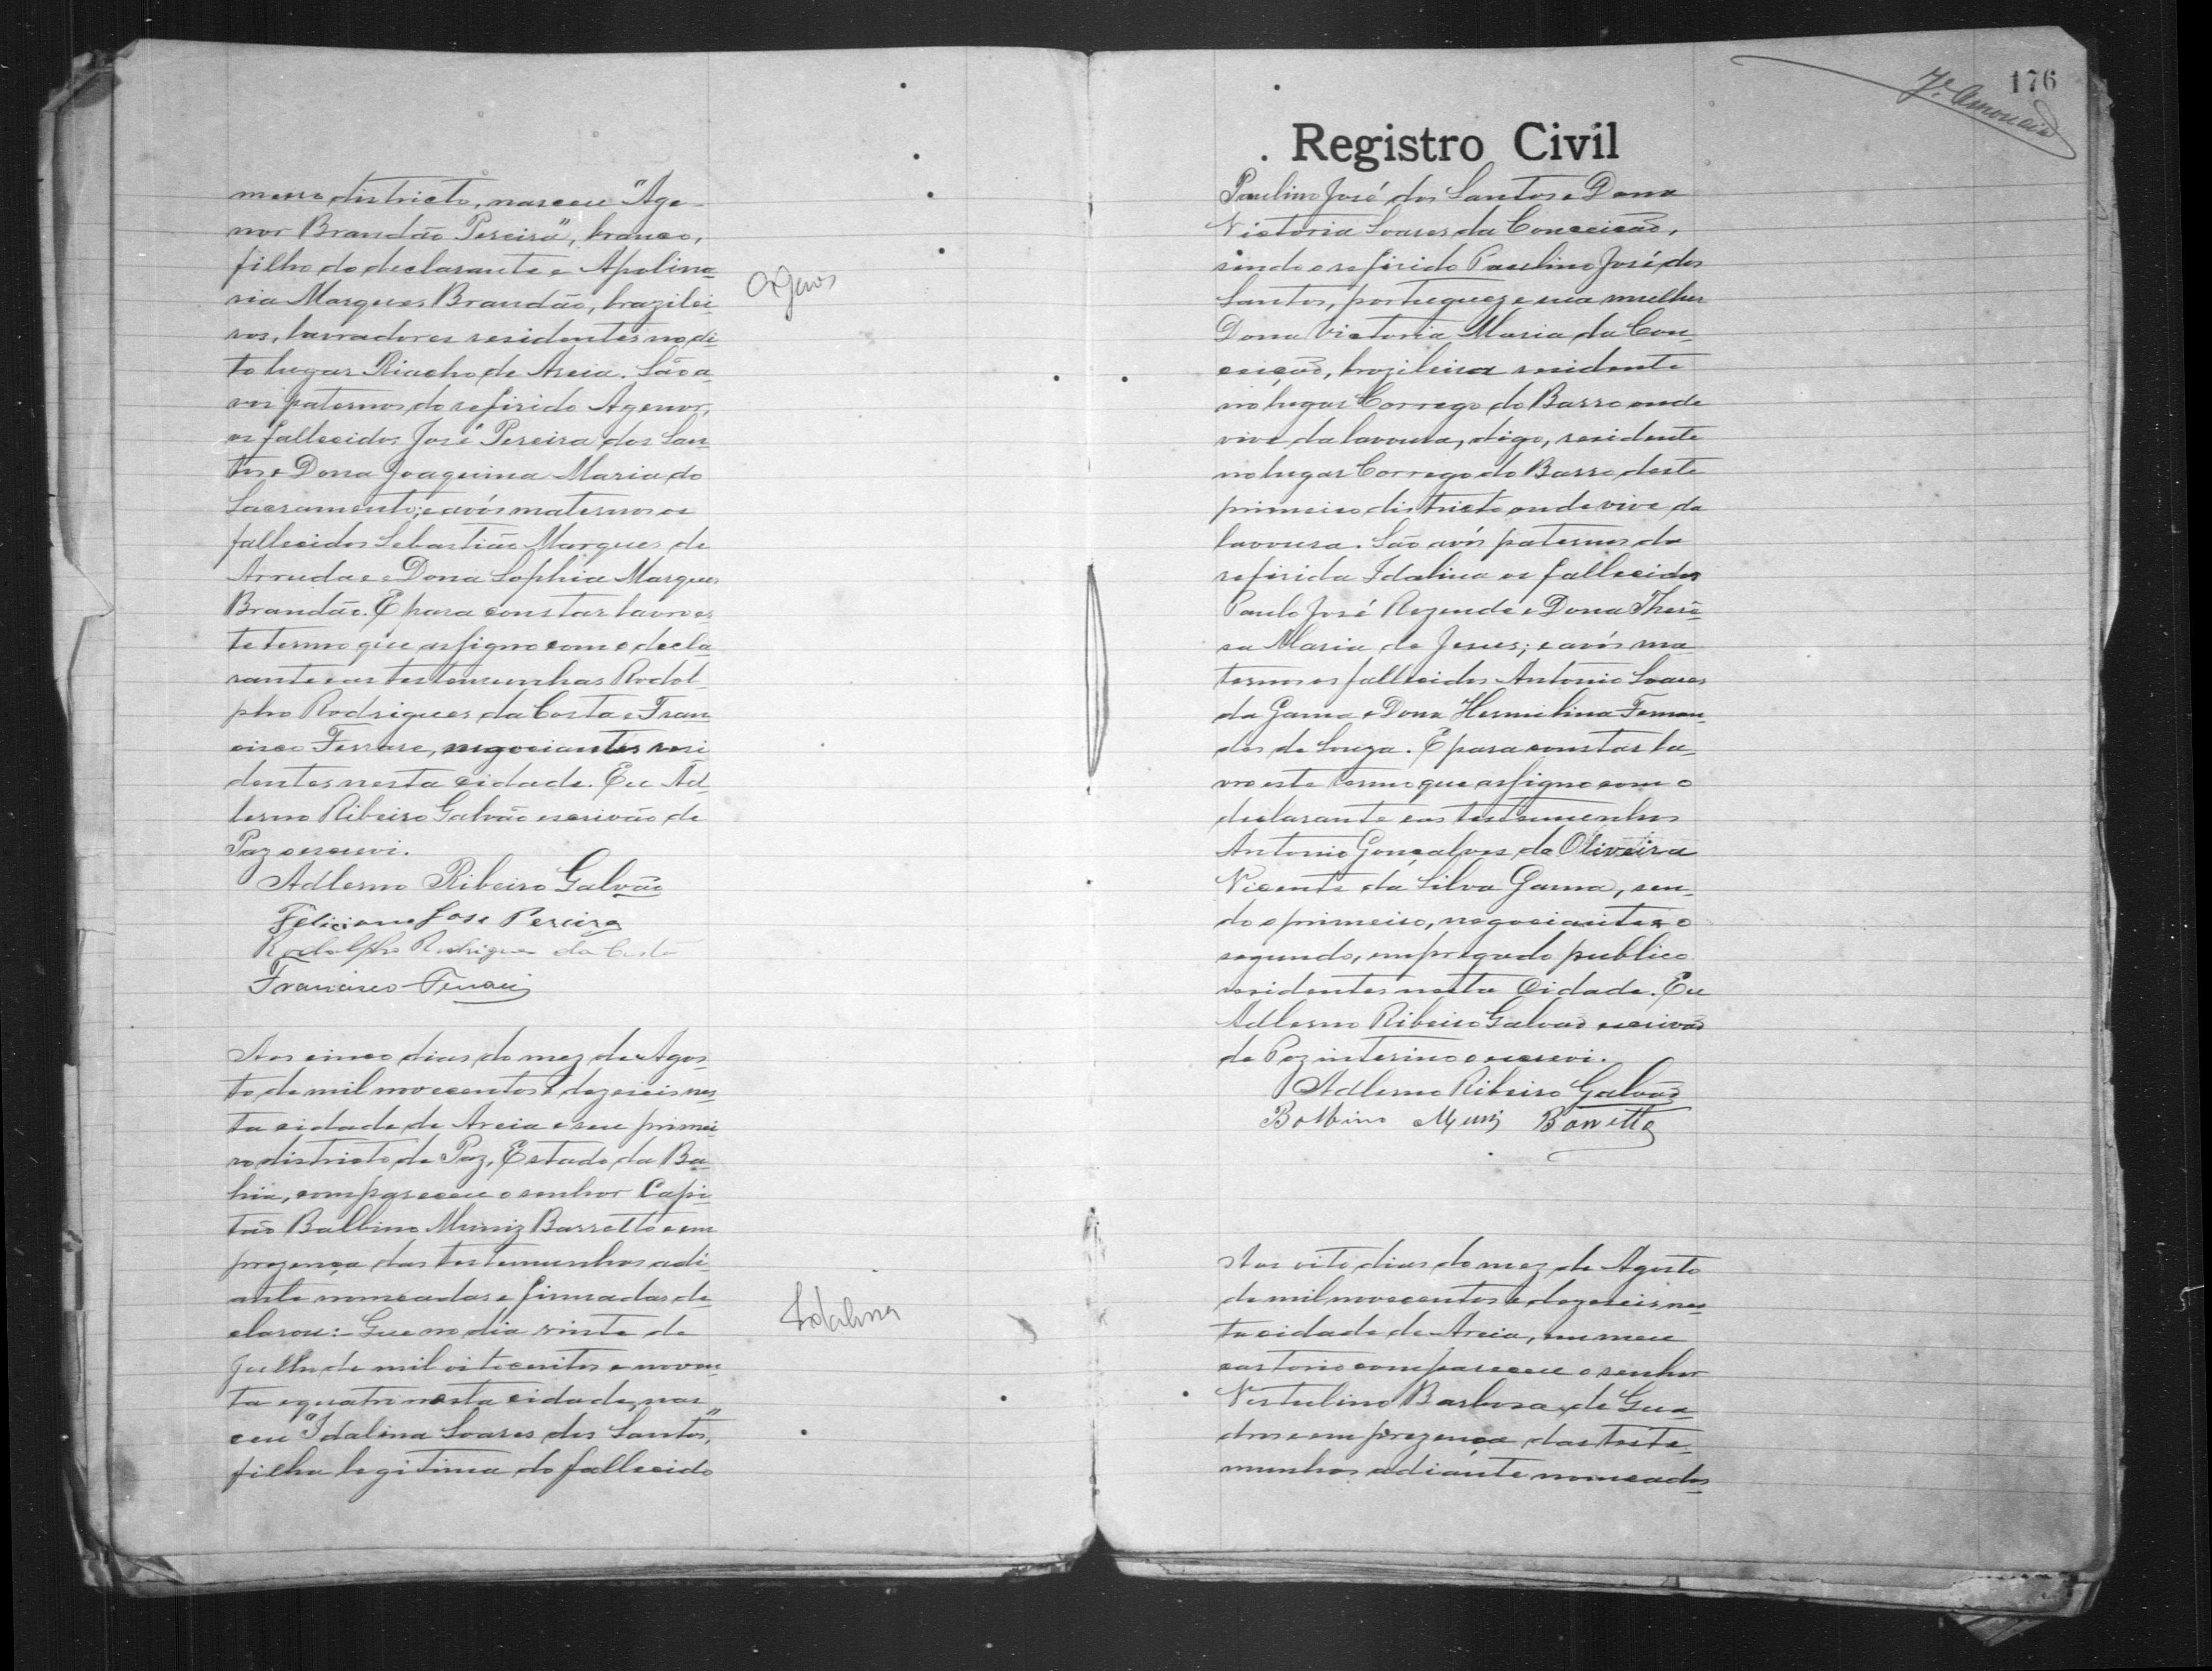 mesmo districto, nasceu "Age-
nor Brandão Pereira", branco,
filho do declarante e Apolina-
ria Marques Brandão, brazilei-
ros, lavradores residentes no di-
to lugar Riacho de Areia. São a-
vos paternos do referido Agenor,
os fallecidos José Pereira dos San-
tos e Dona Joaquina Maria do
Sacramento; e avós maternos os
fallecidos Sebastião Marques de
Arruda e Dona Sophia Marques
Brandão. E para constar lavro es-
te termo que assigno com o decla-
rante e as testemunhas Rodol-
pho Rodrigues da Costa e Fran-
cisco Ferrare, negociantes resi-
dentes nesta cidade. Eu Ad-
lermo Ribeiro Galvão escrivão de
Paz o escrevi.
Adlermo Ribeiro Galvão
Feliciano Jose Pereira
Rodolpho Rodrigues da Costa
Francisco
Agenor
Aos cinco dias do mez de Agos-
to de mil novecentos e dezeseis nes-
ta cidade de Areia e seu primei-
ro districto de Paz, Estado da Ba-
hia, compareceu o senhor Capi-
tão Balbino Muniz Barretto e em
prezença das testemunhas adi-
ante nomeadas e firmadas de-
clarou:- Que no dia vinte de
Julho de mil oitocentos e noven-
ta e quatro nesta cidade, nas-
ceu "Idalina Soares dos Santos",
filha legitima do fallecido
Idalina
176
Registro Civil
Paulino José dos Santos e Dona
Victoria Soares da Conceição,
sendo o referido Paulino José dos
Santos, portuguez e sua mulher
Dona Victoria Maria da Con-
ceição, brazileira residente
no lugar Corrego do Barro onde
vive da lavoura, digo, residente
no lugar Corrego do Barro deste
primeiro districto onde vive da
lavoura. São avós paternos da
referida Idalina os fallecidos
Paulo José Rezende e Dona There-
sa Maria de Jesus; e avós ma-
ternos os fallecidos Antonio Soares
da Gama e Dona Hermilina Fernan-
des de Souza. E para constar la-
vro este termo que assigno com o
declarante e as testemunhas
Antonio Gonçalves de Oliveira
Vicente da Silva Gama, sen-
do o primeiro, negociante e o
segundo, empregado publico
residentes nesta Cidade. Eu
Adlermo Ribeiro Galvão escrivão
de Paz interino o escrevi.
Adlermo Ribeiro Galvão
Balbino Muniz Barretto
Aos oito dias do mez de Agosto
de mil novecentos e dezeseis nes-
ta cidade de Areia, em meu
cartorio compareceu o senhor
Vertulino Barbosa de Qua-
dros e em prezença das teste-
munhas adiante nomeados